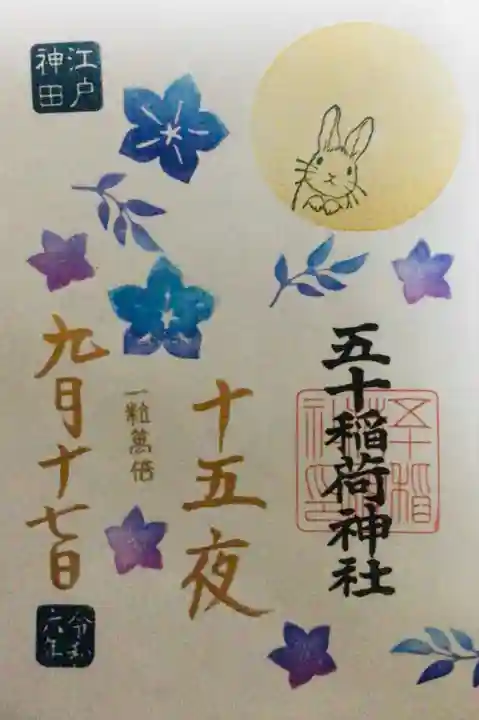 五十稲荷神社
十五夜
一粒萬倍
九月十七日
江戸
神田
令和
六年